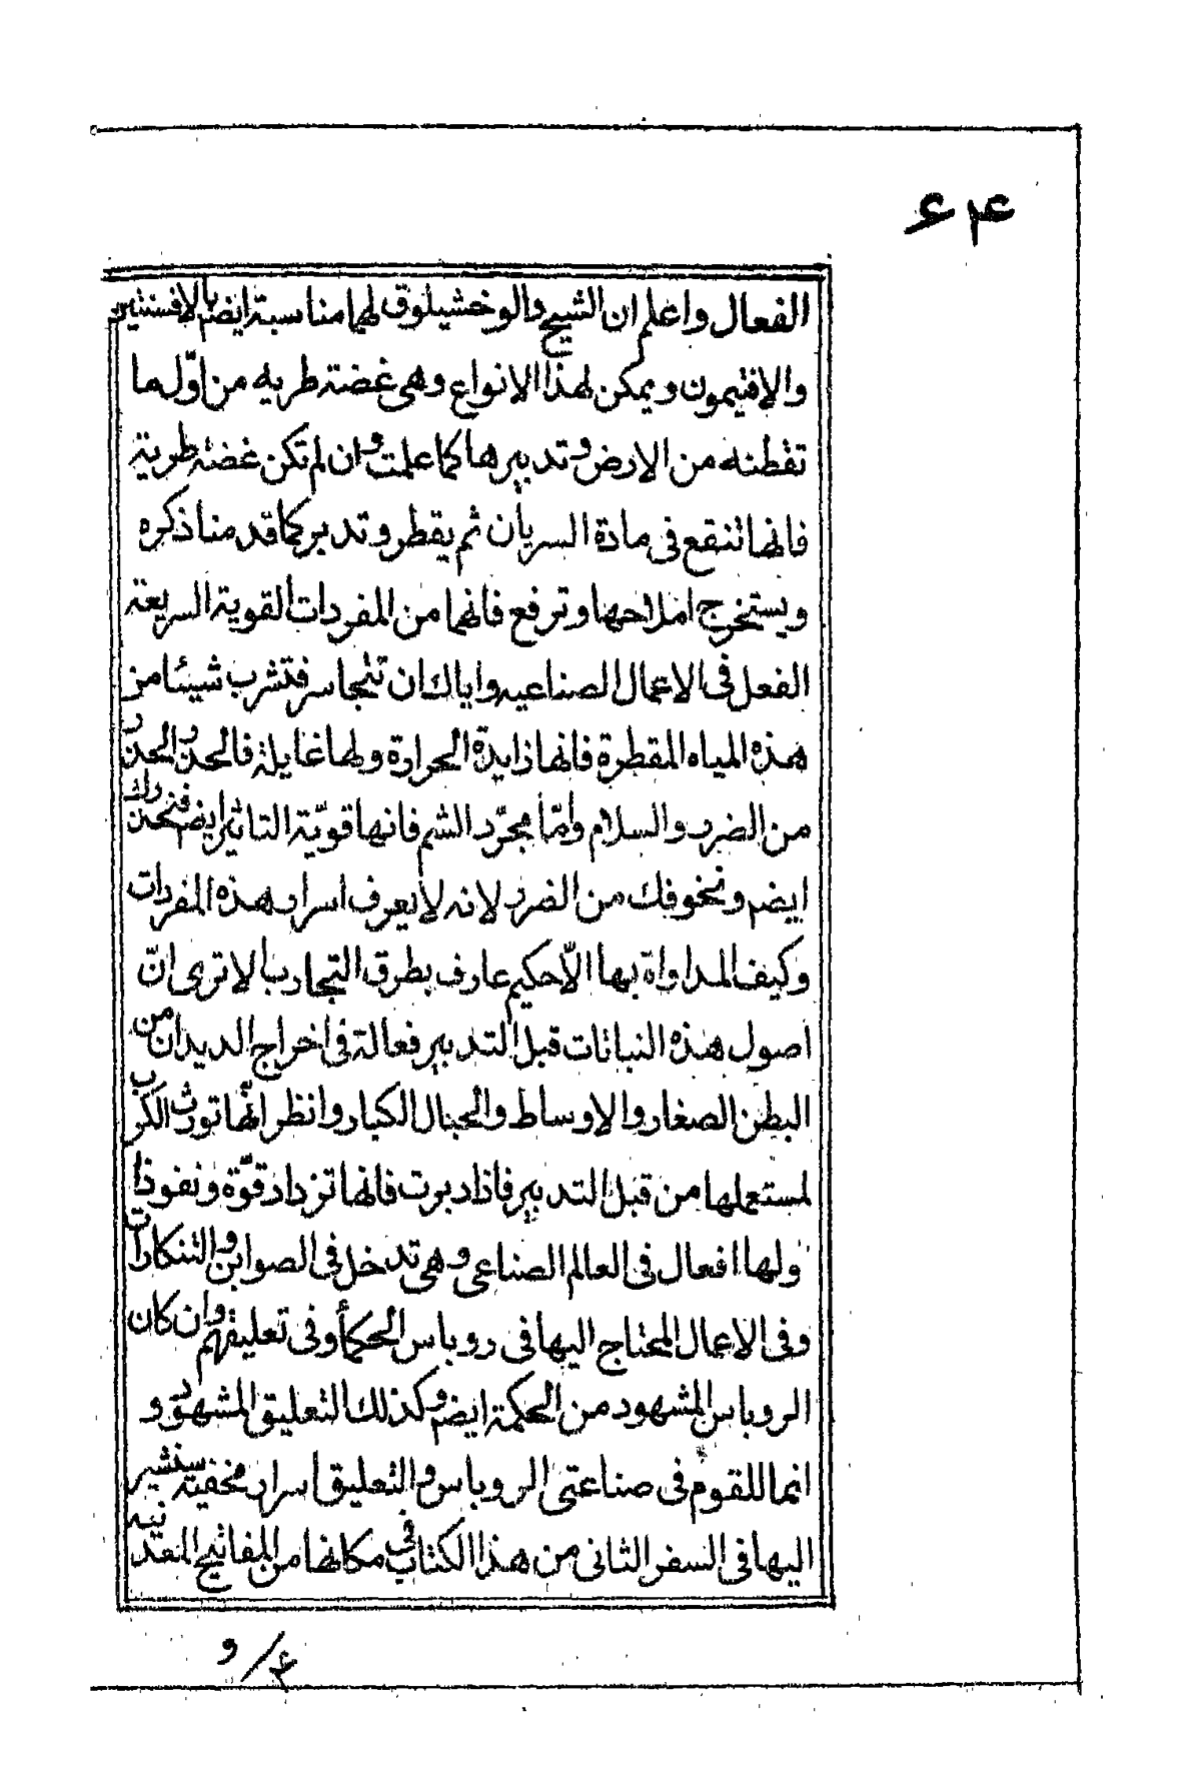 ۴۶
الفعال واعلم ان الشيح والوخشيلوق لهما مناسبة ايضم بالافسنتين
والافتيمون ويمكن لهذا الانواع وهى غضته طريه من اوّل ما
تقطنه من الارض وتدبيرها كما علمت وان لم تكن غضته طرية
فانها تنقع فى مادة السريان ثم يقطر وتدبر كما قدمنا ذكره
ويستخرج املاحها وترفع فانهما من المفردات القوية السريعة
الفعل فى الاعمال الصناعيه واياك ان تتجاسر فتشرب شيئا من
هذه المياه المقطرة فانها زايدة الحرارة ولها غايلة فالحذر الحذر
من الضرر والسلام وأمّا مجرّد الشم فانها قويّة التاثير ايضم فنحذرك
ايضم ونخوفك من الضرر لانه لا يعرف اسرار هذه المفردات
وكيف المداواة بها الاّ حكيم عارف بطرق التجارب الا ترى انّ
اصول هذه النباتات قبل التدبير فعالة فى اخراج الديدان من
البطن الصغار والاوساط والحبال الكبار وانظر انّها تورث الكرب
لمستعملها من قبل التدبير فاذا دبرت فانها تزداد قوّة ونفوذا
ولها افعال فى العالم الصناعى وهى تدخل فى الصوابن والتنكارات
وفى الاعمال المحتاج اليها فى روباس الحكمأ وفى تعليقهم وان كان
الروباس المشهود من الحكمة ايضم وكذلك التعليق المشهور و
انما للقوم فى صناعتى الروباس والتعليق اسرار مخفية سنشير
اليها فى السفر الثانى من هذا الكتاب فى مكانها من المفاتيح المعدنيه
و/۴